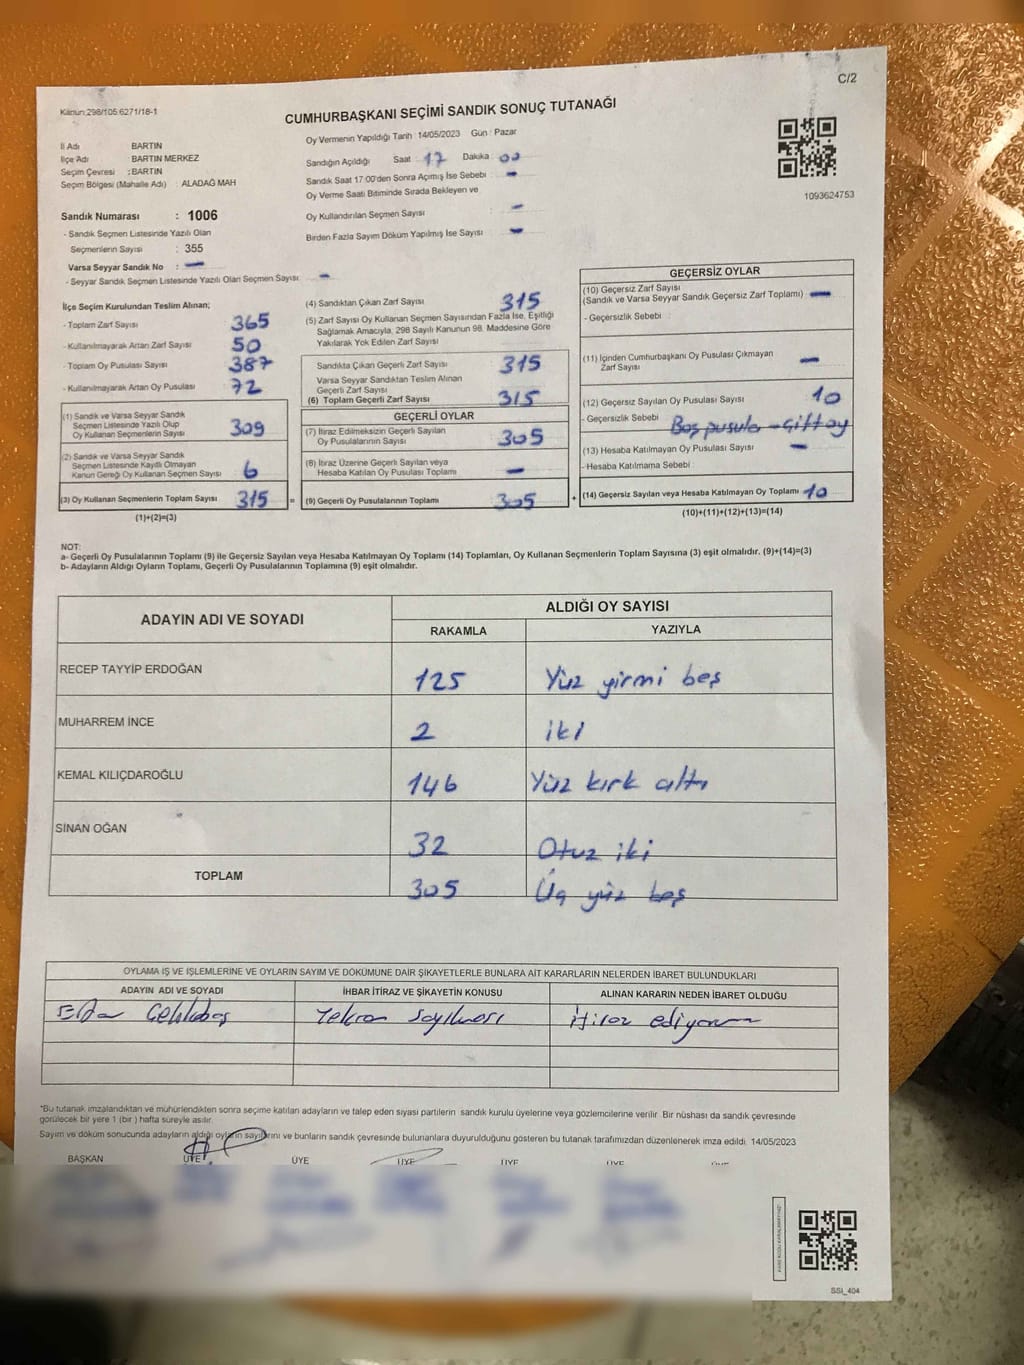 C/2
Kanun:298/105.6271/18-1
CUMHURBAŞKANI SEÇİMİ SANDIK SONUÇ TUTANAĞI
İl Adı BARTIN
İlçe Adı BARTIN MERKEZ
Seçim Çevresi : BARTIN
Seçim Bölgesi (Mahalle Adı) : ALADAĞ MAH
Sandık Numarası : 1006
- Sandık Seçmen Listesinde Yazılı Olan
Seçmenlerin Sayısı : 355
Varsa Seyyar Sandık No : -
- Seyyar Sandık Seçmen Listesinde Yazılı Olan Seçmen Sayısı -
Oy Vermenin Yapıldığı Tarih : 14/05/2023 Gün : Pazar
Sandığın Açıldığı Saat 17 Dakika : 00
Sandık Saat 17:00'den Sonra Açımış İse Sebebi : -
Oy Verme Saati Bitiminde Sırada Bekleyen ve
Oy Kullandırılan Seçmen Sayısı : -
Birden Fazla Sayım Döküm Yapılmış İse Sayısı : -
1093624753
İlçe Seçim Kurulundan Teslim Alınan;
- Toplam Zarf Sayısı 365
- Kullanılmayarak Artan Zarf Sayısı 50
- Toplam Oy Pusulası Sayısı 387
- Kullanılmayarak Artan Oy Pusulası 72
(1) Sandık ve Varsa Seyyar Sandık
Seçmen Listesinde Yazılı Olup
Oy Kullanan Seçmenlerin Sayısı 309
(2) Sandık ve Varsa Seyyar Sandık
Seçmen Listesinde Kayıtlı Olmayan
Kanun Gereği Oy Kullanan Seçmen Sayısı 6
(3) Oy Kullanan Seçmenlerin Toplam Sayısı 315 =
(1)+(2)=(3)
(4) Sandıktan Çıkan Zarf Sayısı 315
(5) Zarf Sayısı Oy Kullanan Seçmen Sayısından Fazla İse, Eşitliği
Sağlamak Amacıyla, 298 Sayılı Kanunun 98. Maddesine Göre
Yakılarak Yok Edilen Zarf Sayısı
Sandıkta Çıkan Geçerli Zarf Sayısı 315
Varsa Seyyar Sandıktan Teslim Alınan
Geçerli Zarf Sayısı
(6) Toplam Geçerli Zarf Sayısı 315
GEÇERLİ OYLAR
(7) İtiraz Edilmeksizin Geçerli Sayılan
Oy Pusulalarının Sayısı 305
(8) İtiraz Üzerine Geçerli Sayılan veya
Hesaba Katılan Oy Pusulası Toplamı -
(9) Geçerli Oy Pusulalarının Toplamı 305 +
GEÇERSİZ OYLAR
(10) Geçersiz Zarf Sayısı
(Sandık ve Varsa Seyyar Sandık Geçersiz Zarf Toplamı) -
- Geçersizlik Sebebi :
(11) İçinden Cumhurbaşkanı Oy Pusulası Çıkmayan
Zarf Sayısı -
(12) Geçersiz Sayılan Oy Pusulası Sayısı 10
- Geçersizlik Sebebi Boş pusula - Çift oy
(13) Hesaba Katılmayan Oy Pusulası Sayısı -
- Hesaba Katılmama Sebebi
(14) Geçersiz Sayılan veya Hesaba Katılmayan Oy Toplamı 10
(10)+(11)+(12)+(13)=(14)
NOT:
a- Geçerli Oy Pusulalarının Toplamı (9) ile Geçersiz Sayılan veya Hesaba Katılmayan Oy Toplamı (14) Toplamları, Oy Kullanan Seçmenlerin Toplam Sayısına (3) eşit olmalıdır. (9)+(14)=(3)
b- Adayların Aldığı Oyların Toplamı, Geçerli Oy Pusulalarının Toplamına (9) eşit olmalıdır.
ADAYIN ADI VE SOYADI ALDIĞI OY SAYISI
RAKAMLA YAZIYLA
RECEP TAYYİP ERDOĞAN 125 Yüz yirmi beş
MUHARREM İNCE 2 iki
KEMAL KILIÇDAROĞLU 146 Yüz kırk altı
SİNAN OĞAN 32 Otuz iki
TOPLAM 305 Üç yüz beş
OYLAMA İŞ VE İŞLEMLERİNE VE OYLARIN SAYIM VE DÖKÜMÜNE DAİR ŞİKAYETLERLE BUNLARA AİT KARARLARIN NELERDEN İBARET BULUNDUKLARI
ADAYIN ADI VE SOYADI İHBAR İTİRAZ VE ŞİKAYETİN KONUSU ALINAN KARARIN NEDEN İBARET OLDUĞU
Tekrar Sayılması İtiraz ediyorum
*Bu tutanak imzalandıktan ve mühürlendikten sonra seçime katılan adayların ve talep eden siyasi partilerin sandık kurulu üyelerine veya gözlemcilerine verilir. Bir nüshası da sandık çevresinde
görülecek bir yere 1 (bir) hafta süreyle asılır.
Sayım ve döküm sonucunda adayların aldığı oyların sayılarını ve bunların sandık çevresinde bulunanlara duyurulduğunu gösteren bu tutanak tarafımızdan düzenlenerek imza edildi. 14/05/2023
BAŞKAN ÜYE ÜYE ÜYE ÜYE ÜYE ÜYE
SSI_404